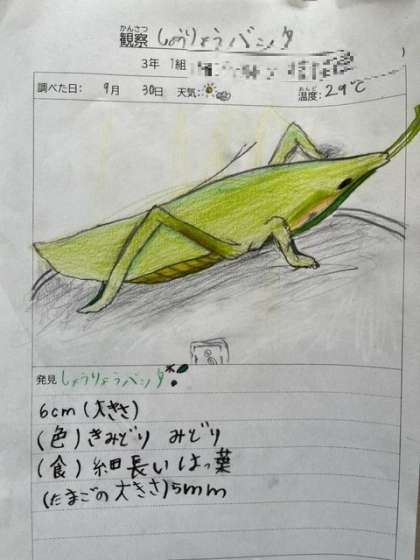 かんさつ
観察 しょうりょうバッタ
3年 1組
おんど
調べた日: 9月 30日 天気: 温度: 29℃
発見 しょうりょうバッタ
6cm(大きさ)
(色)きみどり みどり
(食)細長いはっ葉
(たまごの大きさ)5mm